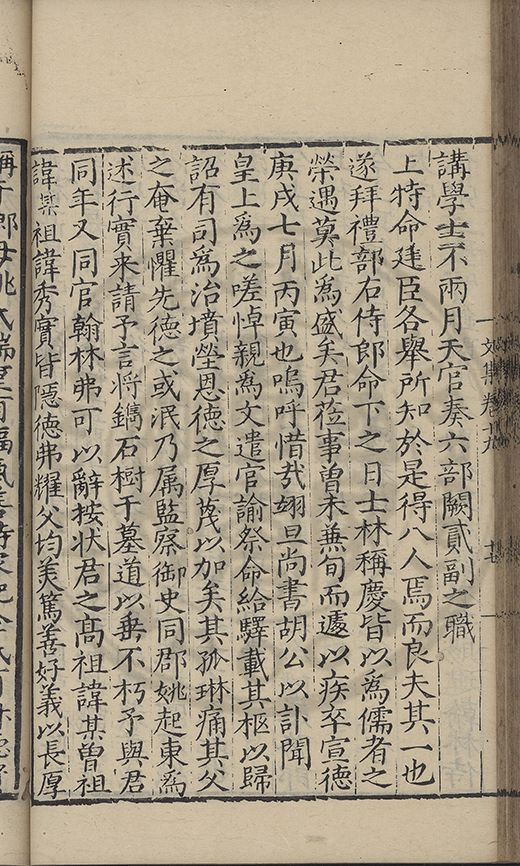 講學士不兩月天官奏六部闕貳副之職
上特命廷臣各舉所知於是得八人焉而良夫其一也
遂拜禮部右侍郎命下之日士林稱慶皆以為儒者之
榮遇莫此為盛矣君蒞事曾未兼旬而遽以疾卒宣德
庚戌七月丙寅也嗚呼惜哉翊旦尚書胡公以訃聞
皇上為之嗟悼親為文遣官諭祭命給驛載其柩以歸
詔有司為治墳塋恩德之厚蔑以加矣其孤琳痛其父
之奄棄懼先德之或泯乃属監察御史同郡姚起東為
述行實来請予言将鐫石樹于墓道以垂不朽予與君
同年又同官翰林弗可以辭按状君之高祖諱某曾祖
諱某祖諱秀實皆隱德弗耀父均美篤善好義以長厚
文集卷十九